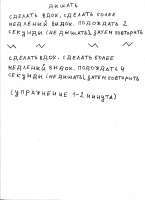 ДИШАТЬ
СДЕЛАТЬ ВДОХ, СДЕЛАТЬ БОЛЕЕ
МЕДЛЕНИЙ ВИДОХ. ПОДОЖДАТЬ 2
СЕКУНДИ (НЕ ДЫШАТЬ), ЗАТЕМ ПОВТОРИТЬ
СДЕЛАТЬ ВДОХ, СДЕЛАТЬ БОЛЕЕ
МЕДЛЕНИЙ ВИДОХ. ПОДОЖДАТЬ 4
СЕКУНДИ (НЕ ДИШАТЬ), ЗАТЕМ ПОВТОРИТЬ
(УПРАЖНЕНИЕ 1-2 МИНУТА)